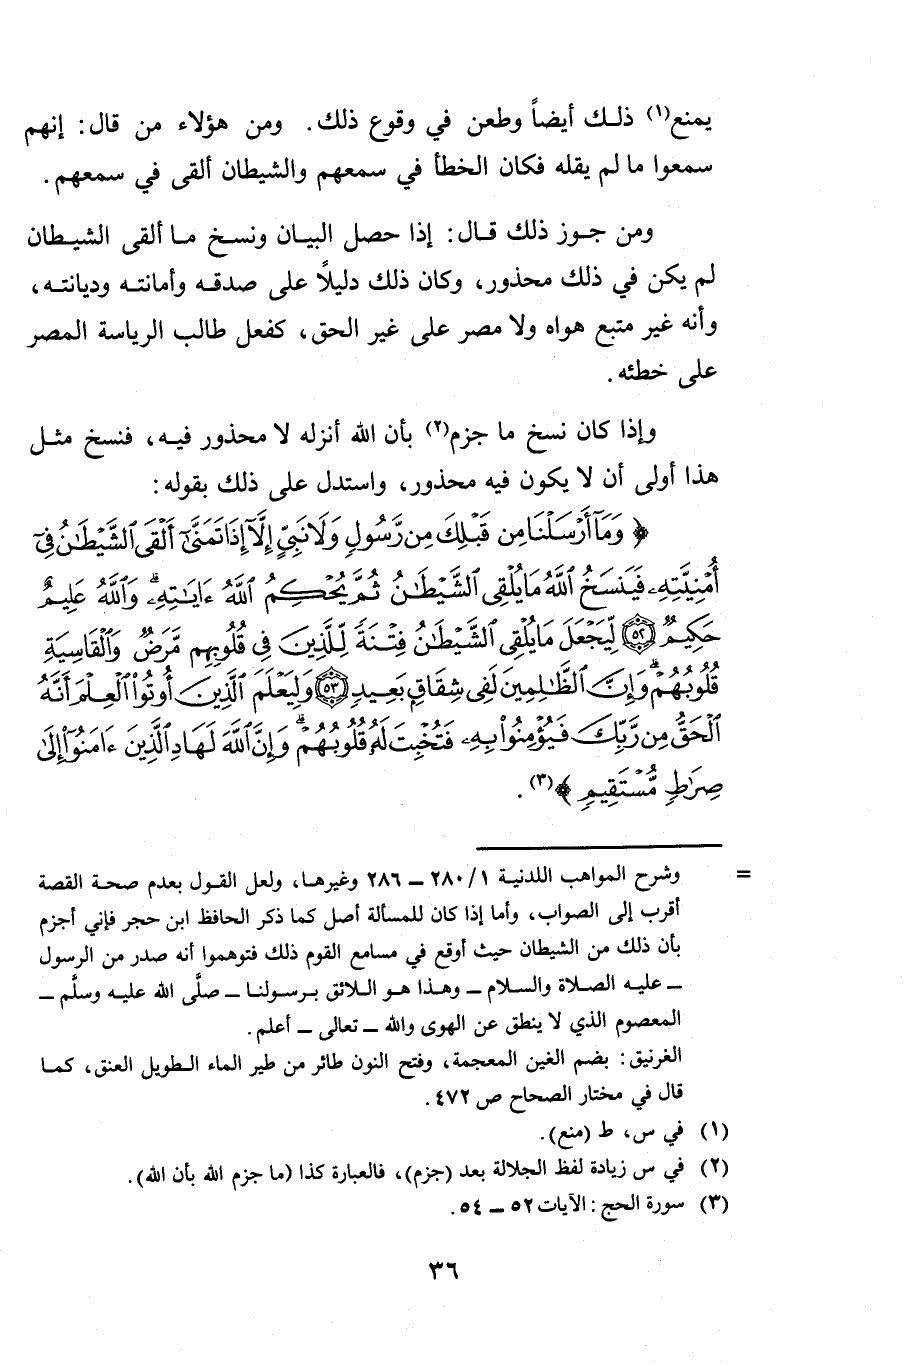 يمنع(١) ذلـك أيضاً وطعن في وقوع ذلك. ومن هؤلاء من قال: إنهم
سمعوا ما لم يقله فكان الخطأ في سمعهم والشيطان ألقى في سمعهم.
ومن جـوز ذلك قـال: إذا حصل البيـان ونسـخ مـا ألقى الشيـطان
لم يكن في ذلك محذور، وكان ذلك دليلاً على صدقـه وأمانتـه وديانتـه،
وأنه غير متبع هواه ولا مصر على غير الحق، كفعل طالب الرياسة المصر
على خطئه.
وإذا كان نسخ ما جزم(٢) بأن الله أنزله لا محذور فيـه، فنسخ مثـل
هذا أولى أن لا يكون فيه محذور، واستدل على ذلك بقوله:
﴿ وَمَآ أَرْسَلْنَا مِن قَبْلِكَ مِن رَّسُولٍ وَلَا نَبِيٍّ إِلَّآ إِذَا تَمَنَّىٰٓ أَلْقَى ٱلشَّيْطَٰنُ فِىٓ
أُمْنِيَّتِهِۦ فَيَنسَخُ ٱللَّهُ مَا يُلْقِى ٱلشَّيْطَٰنُ ثُمَّ يُحْكِمُ ٱللَّهُ ءَايَٰتِهِۦۗ وَٱللَّهُ عَلِيمٌ
حَكِيمٌ ۝٥٢ لِّيَجْعَلَ مَا يُلْقِى ٱلشَّيْطَٰنُ فِتْنَةً لِّلَّذِينَ فِى قُلُوبِهِم مَّرَضٌ وَٱلْقَاسِيَةِ
قُلُوبُهُمْۗ وَإِنَّ ٱلظَّٰلِمِينَ لَفِى شِقَاقٍۭ بَعِيدٍ ۝٥٣ وَلِيَعْلَمَ ٱلَّذِينَ أُوتُوا۟ ٱلْعِلْمَ أَنَّهُ
ٱلْحَقُّ مِن رَّبِّكَ فَيُؤْمِنُوا۟ بِهِۦ فَتُخْبِتَ لَهُۥ قُلُوبُهُمْۗ وَإِنَّ ٱللَّهَ لَهَادِ ٱلَّذِينَ ءَامَنُوٓا۟ إِلَىٰ
صِرَٰطٍ مُّسْتَقِيمٍ ﴾(٣).
= وشرح المواهب اللدنيـة ١/ ٢٨٠ ــ ٢٨٦ وغيرهـا، ولعل القـول بعدم صحـة القصة
أقرب إلى الصواب، وأما إذا كان للمسألة أصل كما ذكر الحافظ ابن حجر فإني أجزم
بأن ذلك من الشيطان حيث أوقع في مسامع القوم ذلك فتوهموا أنه صدر من الرسول
ــ عليـه الصـلاة والسـلام ــ وهـذا هـو اللائق بـرسـولنـا ــ صلَّى الله عليـه وسلَّم ــ
المعصوم الذي لا ينطق عن الهوى والله ــ تعالى ــ أعلم.
الغرنيق: بضم الغين المعجمة، وفتح النون طائر من طير الماء الـطويل العنق، كمـا
قال في مختار الصحاح ص ٤٧٢.
(١) في س، ط (منع).
(٢) في س زيادة لفظ الجلالة بعد (جزم)، فالعبارة كذا (ما جزم الله بأن الله).
(٣) سورة الحج: الآيات ٥٢ ــ ٥٤.
٣٦